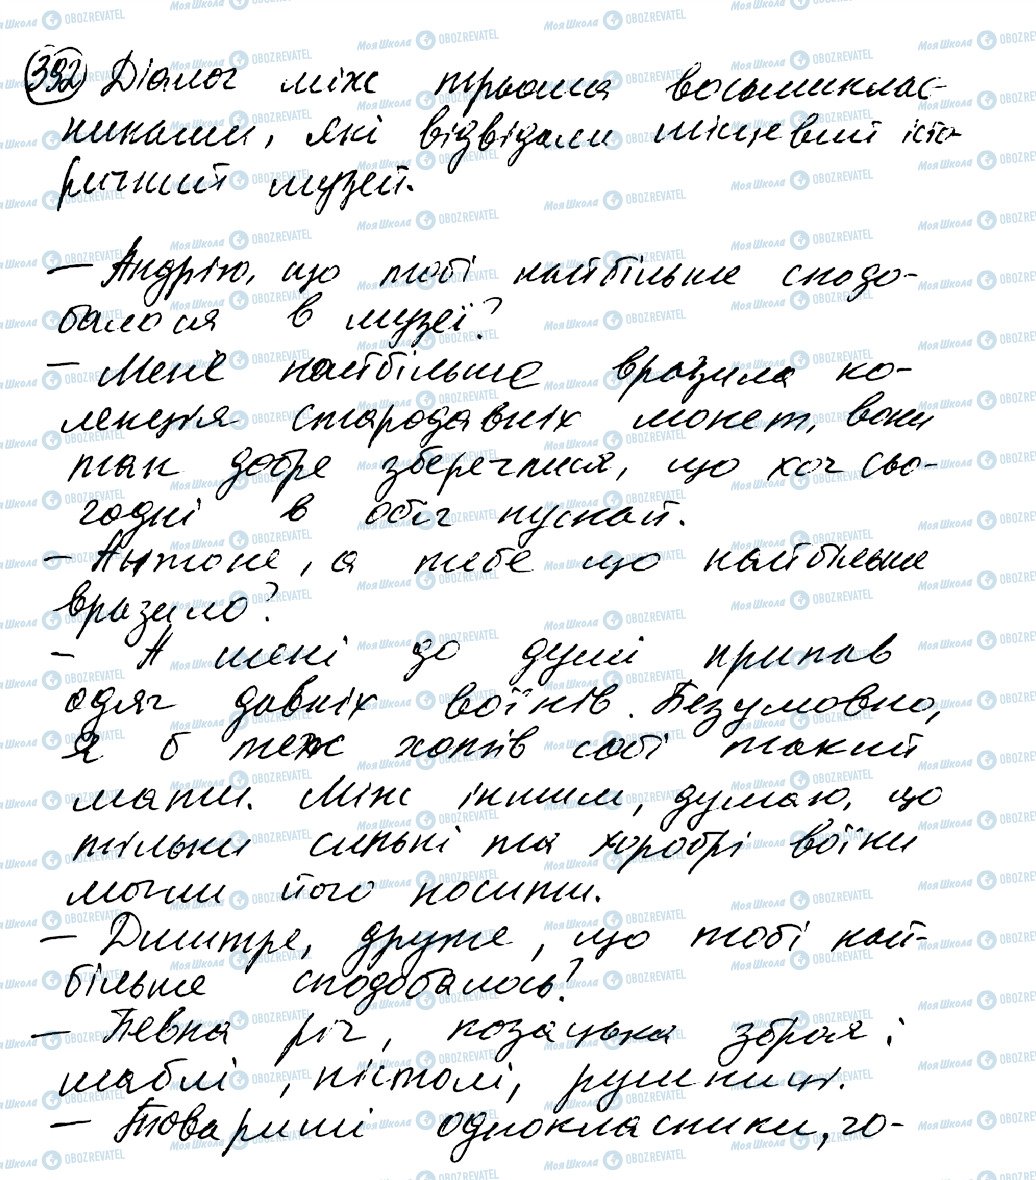 392 Діалог між трьома восьмиклас-
никами, які відвідали місцевий істо-
ричний музей.
— Андрію, що тобі найбільше сподо-
балося в музеї?
— Мене найбільше вразила ко-
лекція стародавніх монет, вони
так добре збереглися, що хоч сьо-
годні в обіг пускай.
— Антоне, а тебе що найбільше
вразило?
— А мені до душі припав
одяг давніх воїнів. Безумовно,
я б теж хотів собі такий
мати. Між іншим, думаю, що
тільки сильні та хоробрі воїни
могли його носити.
— Дмитре, друже, що тобі най-
більше сподобалось?
— Певна річ, козацька зброя:
шаблі, пістолі, рушниці.
— Товариші однокласники, го-